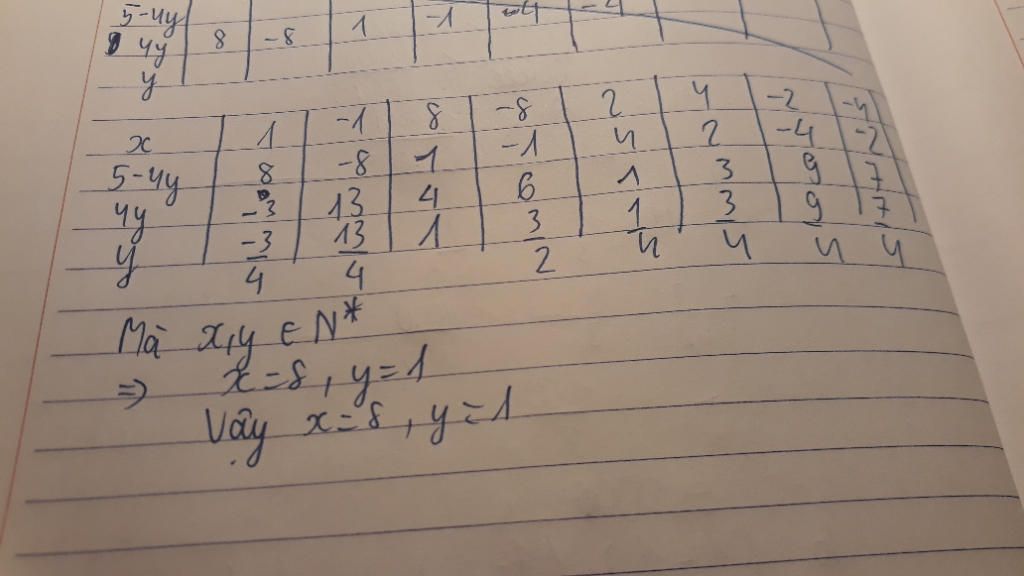 5-4y -1 -4 -4
4y 8 -8 1
y
x 1 -1 8 -8 2 4 -2 -4
5-4y 8 -8 1 -1 4 2 -4 -2
4y -3 13 4 6 1 3 9 7
y -3/4 13/4 1 3/2 1/4 3/4 9/4 7/4
Mà x,y ∈ N*
=> x=8, y=1
Vậy x=8, y=1